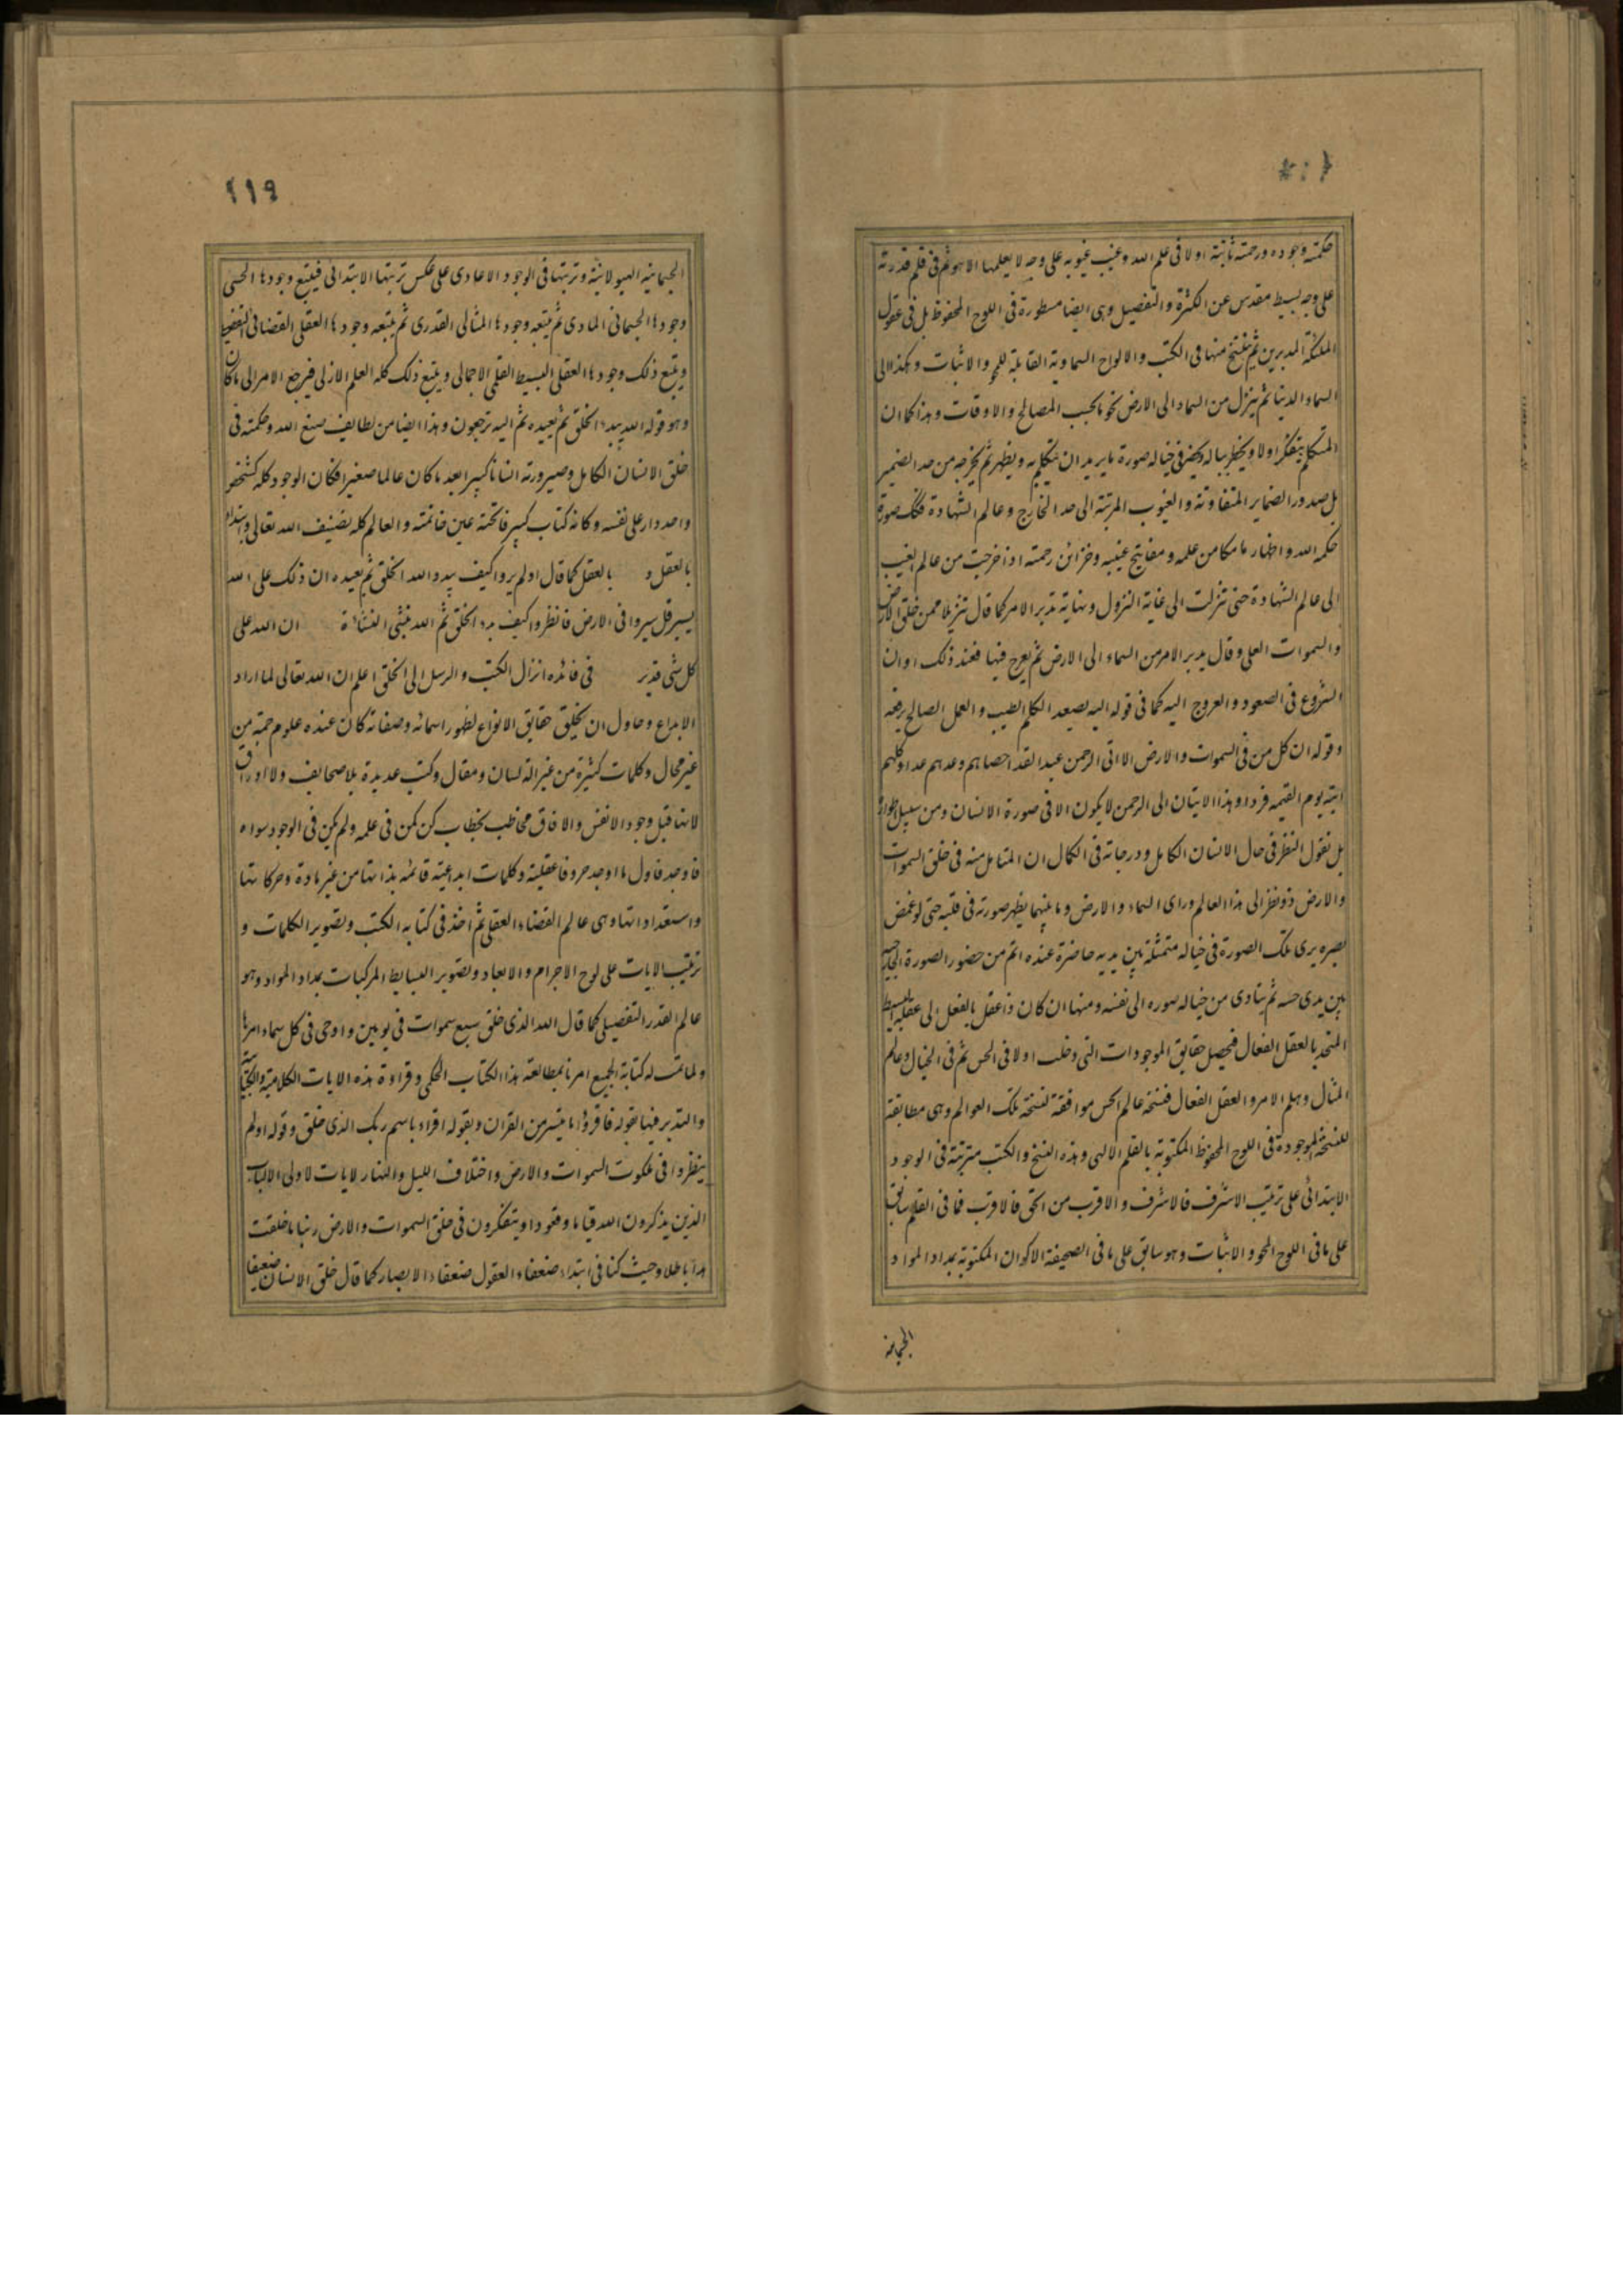 حكمته وجوده ورحمته ثابتة اولا فى علم الله وغيب غيوبه على وجه لا يعلمها الا هو ثم فى قلم قدرته
على وجه بسيط مقدس عن الكثرة والتفصيل وهى ايضا مسطورة فى اللوح المحفوظ بل فى عقول
الملئكة المدبرين ثم ينتسخ منها فى الكتب والالواح السماوية القابلة للمحو والاثبات وهكذا الى
السماء الدنيا ثم ينزل من السماء الى الارض نجوما بحسب المصالح والاوقات وهذا كما ان
المتكلم يتفكر اولا ويخطر بباله ويحضر فى خياله صورة ما يريد ان يتكلم به ويظهر ثم يخرجه من حد الضمير
بل صدور الضماير المتفاوتة والغيوب المرتبة الى حد الخارج وعالم الشهادة فكذلك صورة
حكمه الله واظهار ما مكامن علمه ومفاتيح غيبه وخزائن رحمته اذ اخرجت من عالم الغيب
الى عالم الشهادة حتى تنزلت الى غاية النزول ونهاية تدبر الامر كما قال تنزيلا ممن خلق الارض
والسموات العلى وقال يدبر الامر من السماء الى الارض ثم يعرج فيها فعند ذلك اوان
الشروع فى الصعود والعروج اليه كما فى قوله اليه يصعد الكلم الطيب والعمل الصالح يرفعه
وقوله ان كل من فى السموات والارض الا اتى الرحمن عبدا لقد احصاهم وعدهم عدا وكلهم
اتيه يوم القيمه فردا وهذا الايتان الى الرحمن لا يكون الا فى صورة الانسان ومن سبيل
بل نقول النظر فى حال الانسان الكامل ودرجاته فى الكمال ان المتامل منه فى خلق السموات
والارض ذو نظر الى هذا العالم وراى السماء والارض وما بينهما يظهر صورته فى قلبه حتى لو غمض
بصره يرى تلك الصورة فى خياله متمثلة بين يديه حاضرة عنده اتم من حضور الصورة
بين يدى حسه ثم يتادى من خياله صوره الى نفسه ومنها ان كان ذا عقل بالفعل الى عقله البسيط
المتحد بالعقل الفعال فيحصل حقايق الموجودات التى دخلت اولا فى الحس ثم فى الخيال وعالم
المثال وهلم الامر والعقل الفعال فنسخة عالم الحس موافقة لنسخة تلك العوالم وهى مطابقة
للنسخة الموجودة فى اللوح المحفوظ المكتوبة بالقلم الالهى وهذه النسخ والكتب مترتبة فى الوجود
الابتدائى على ترتيب الاشرف فالاشرف والاقرب من الحق فالاقرب فما فى القلم سابق
على ما فى اللوح المحو والاثبات وهو سابق على ما فى الصحيفة الاكوان المكتوبة بمداد المواد
الجسمانية
١١٩
الجسمانيه الهيولانية وترتبها فى الوجود الاعادى على عكس ترتبها الابتدائى فيتبع وجودها الحسى
وجودها الجسمانى المادى ثم يتبعه وجودها المثالى القدرى ثم يتبعه وجودها العقلى القضائى التفصيلى
ويتبع ذلك وجودها العقلى البسيط القلمى الاجمالى ويتبع ذلك كله العلم الازلى فيرجع الامر الى ما كان
وهو قوله الله يبدء الخلق ثم يعيده ثم اليه ترجعون وهذا ايضا من لطايف صنع الله وحكمته فى
خلق الانسان الكامل وصيرورته انسانا كبيرا بعد ما كان عالما صغيرا فكان الوجود كله كشخص
واحد دار على نفسه وكانه كتاب كبير فاتحته عين خاتمته والعالم كله تصنيف الله تعالى وابتداء
بالعقل و بالعقل كما قال اولم يروا كيف يبدو الله الخلق ثم يعيده ان ذلك على الله
يسير قل سيروا فى الارض فانظروا كيف بدء الخلق ثم الله ينشى النشاة ان الله على
كل شى قدير فى فائده انزال الكتب والرسل الى الخلق اعلم ان الله تعالى لما اراد
الابداع وحاول ان يخليق حقايق الانواع لظهور اسمائه وصفاته كان عنده علوم جمة من
غير محال وكلمات كثيرة من غير الة لسان ومقال وكتب عديدة بلا صحايف ولا اوراق
لانها قبل وجود الانفس والافاق مخاطب بخطاب كن لمن فى علمه ولم يكن فى الوجود سواه
فاوجد فاول ما اوجد حروفا عقلية وكلمات ابداعية قائمه بذاتها من غير مادة وحركاتها
واستعداداتها وهى عالم القضاء العقلى ثم اخذ فى كتابه الكتب وتصوير الكلمات و
ترتيب الايات على لوح الاجرام والابعاد وتصوير البسايط المركبات بمداد المواد وهو
عالم القدر التفصيلى كما قال الله الذى خلق سبع سموات فى يومين واوحى فى كل سماء امرها
ولما تمت له كتابة الجميع امرنا بمطالعه هذا الكتاب الحكمى وقراءة هذه الايات الكلامية والكتابية
والتدبر فيها بقوله فاقرؤا ما تيسر من القران وبقوله اقراء باسم ربك الذى خلق وقوله اولم
ينظروا فى ملكوت السموات والارض واختلاف الليل والنهار لايات لاولى الالباب
الذين يذكرون الله قياما وقعودا ويتفكرون فى خلق السموات والارض ربنا ما خلقت
هذا باطلا وحيث كنا فى ابتداء ضعفاء العقول ضعفاء الابصار كما قال خلق الانسان ضعيفا